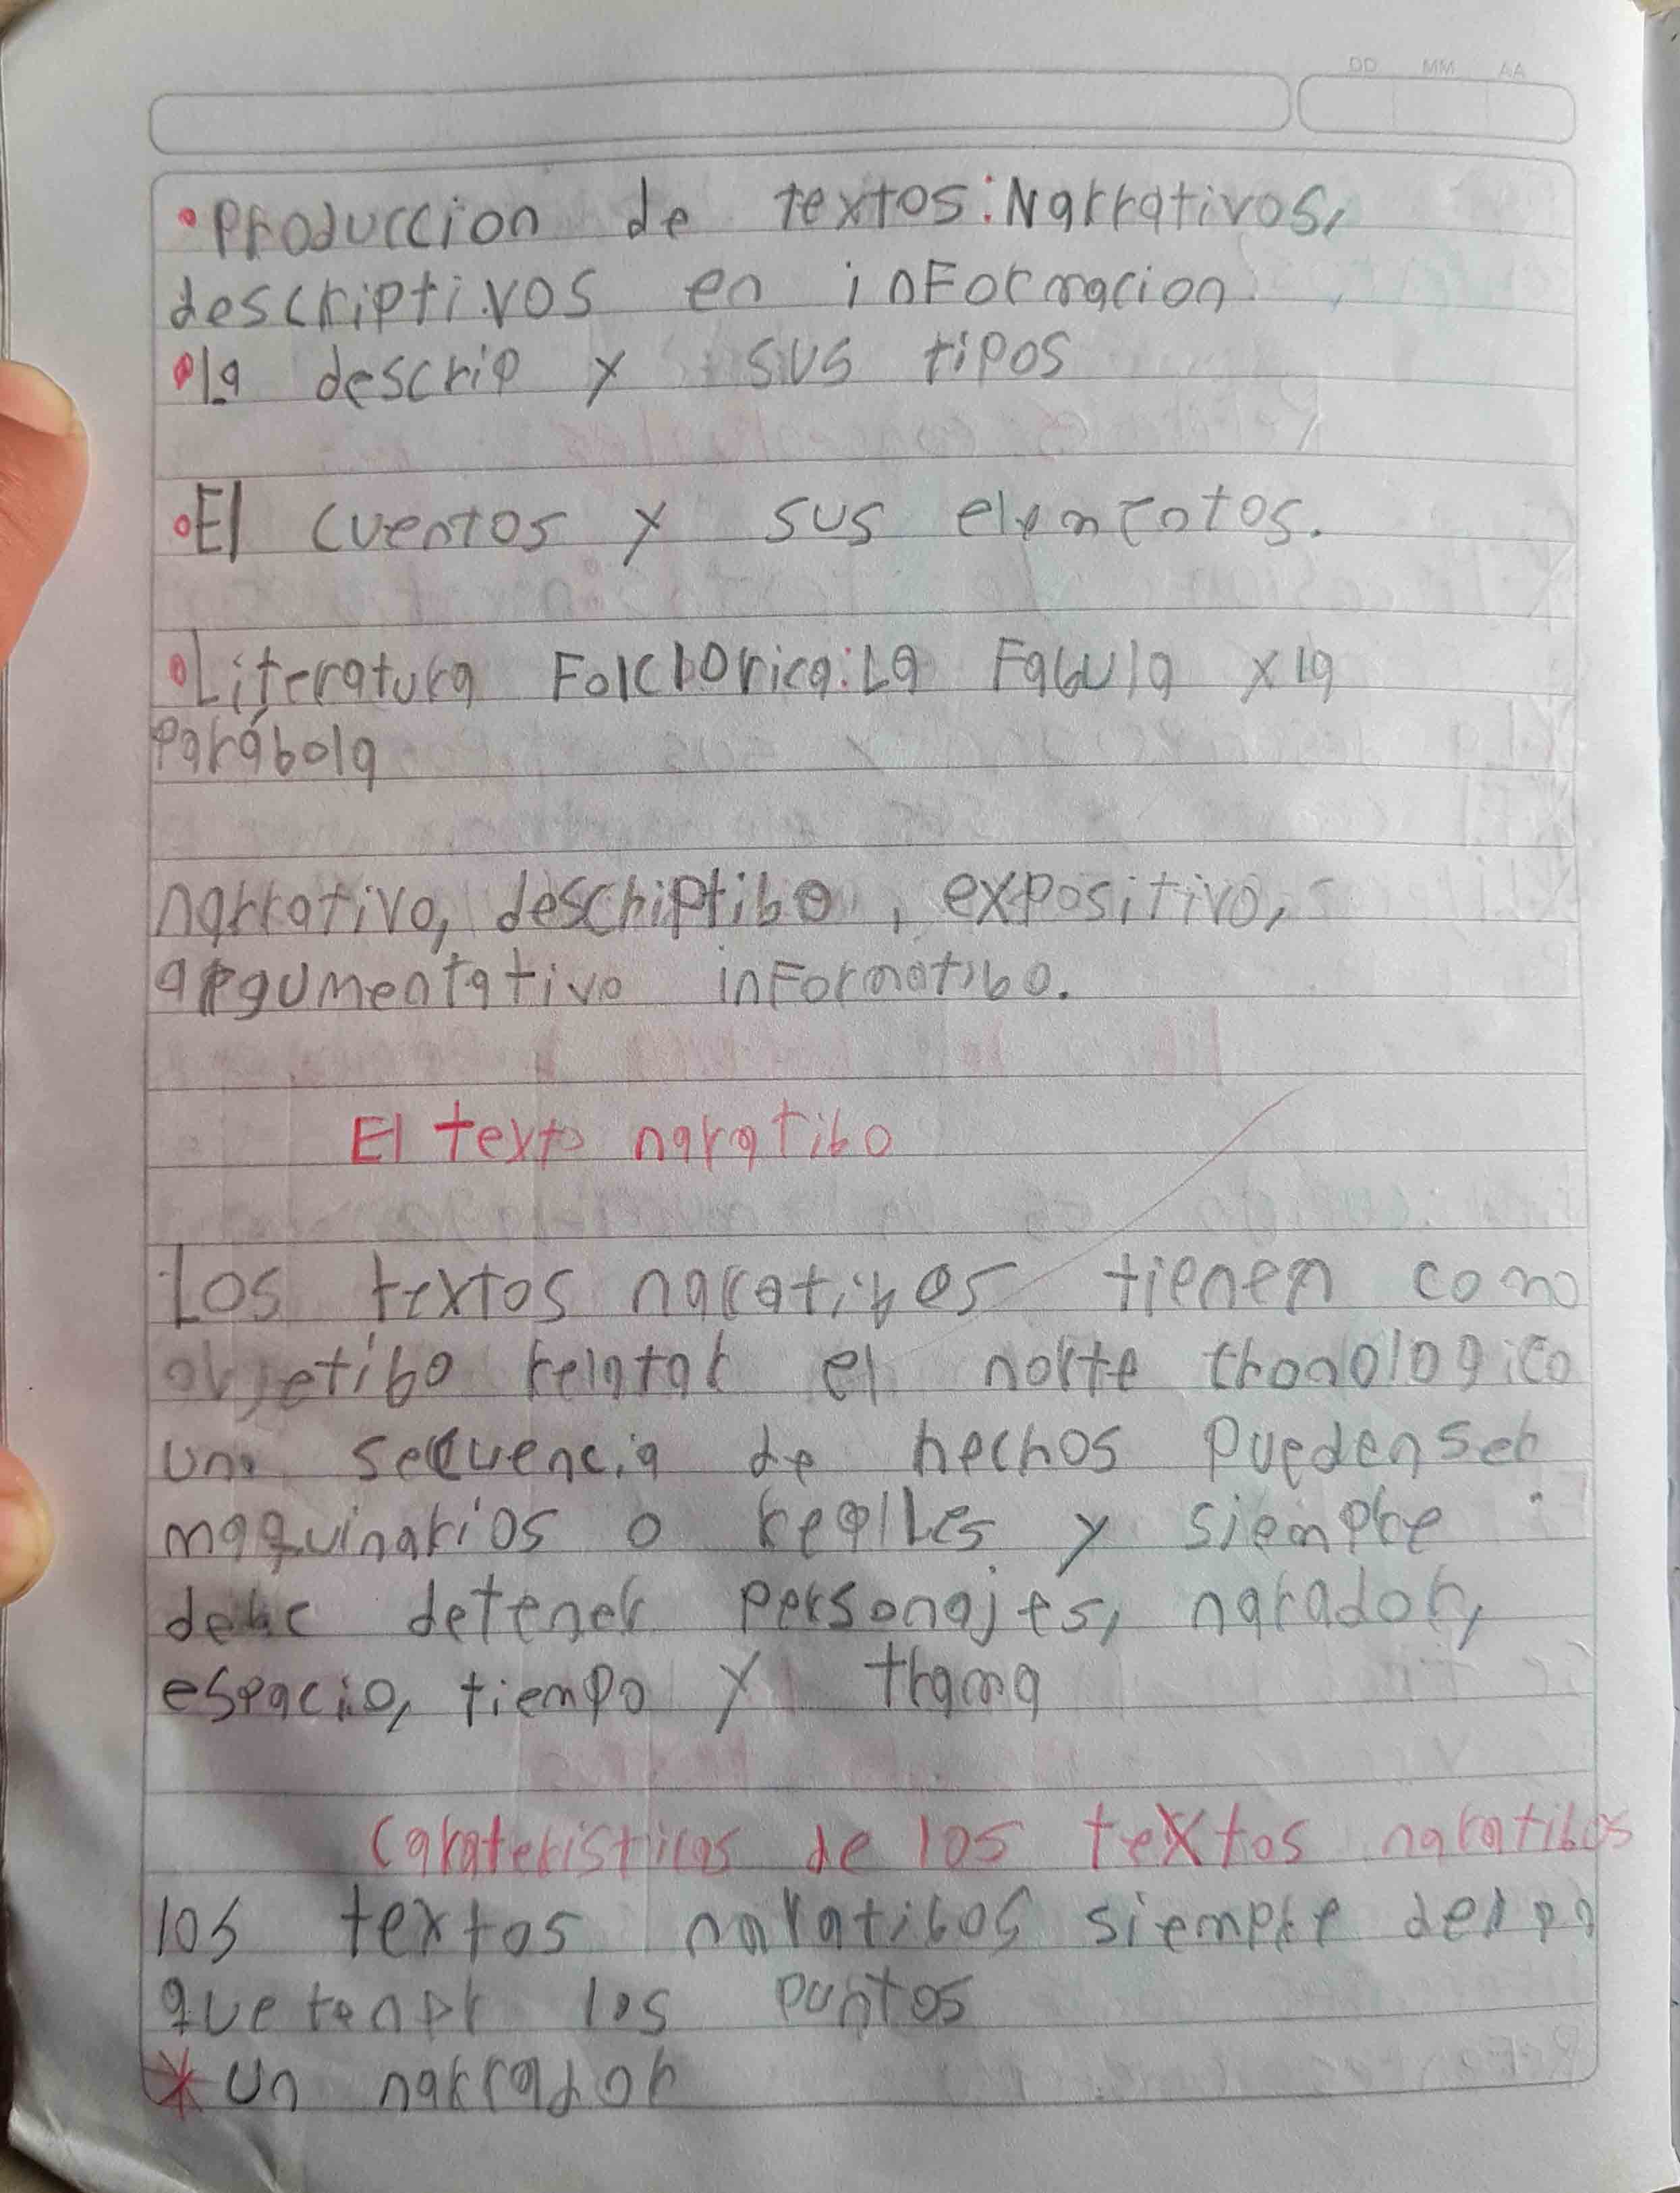 DD MM AA
•Produccion de textos: Narrativos,
descriptivos en informacion
•la descrip y sus tipos
•El cuentos y sus elementos.
•Literatura Folclorica: La Fabula y la
parábola
narrativo, descriptibo, expositivo,
argumentativo informatibo.
El texto naratibo
Los textos naratibos tienen como
objetibo relatar el norte cronologico
una secuencia de hechos puedenser
maquinarios o realles y siempre
debe detener personajes, narador,
espacio, tiempo y trama
Carateristicas de los textos naratibos
los textos naratibos siempre
que tener los puntos
* un narrador